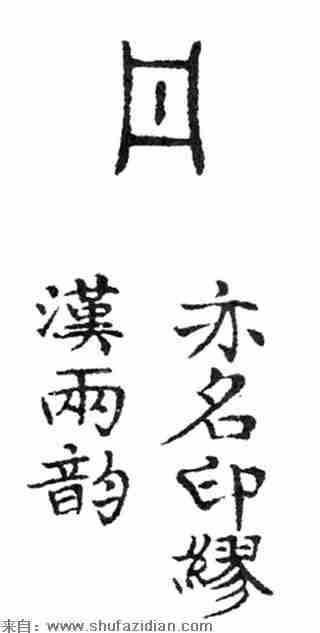 亦名印繆
漢兩韵
来自：www.shufazidian.com